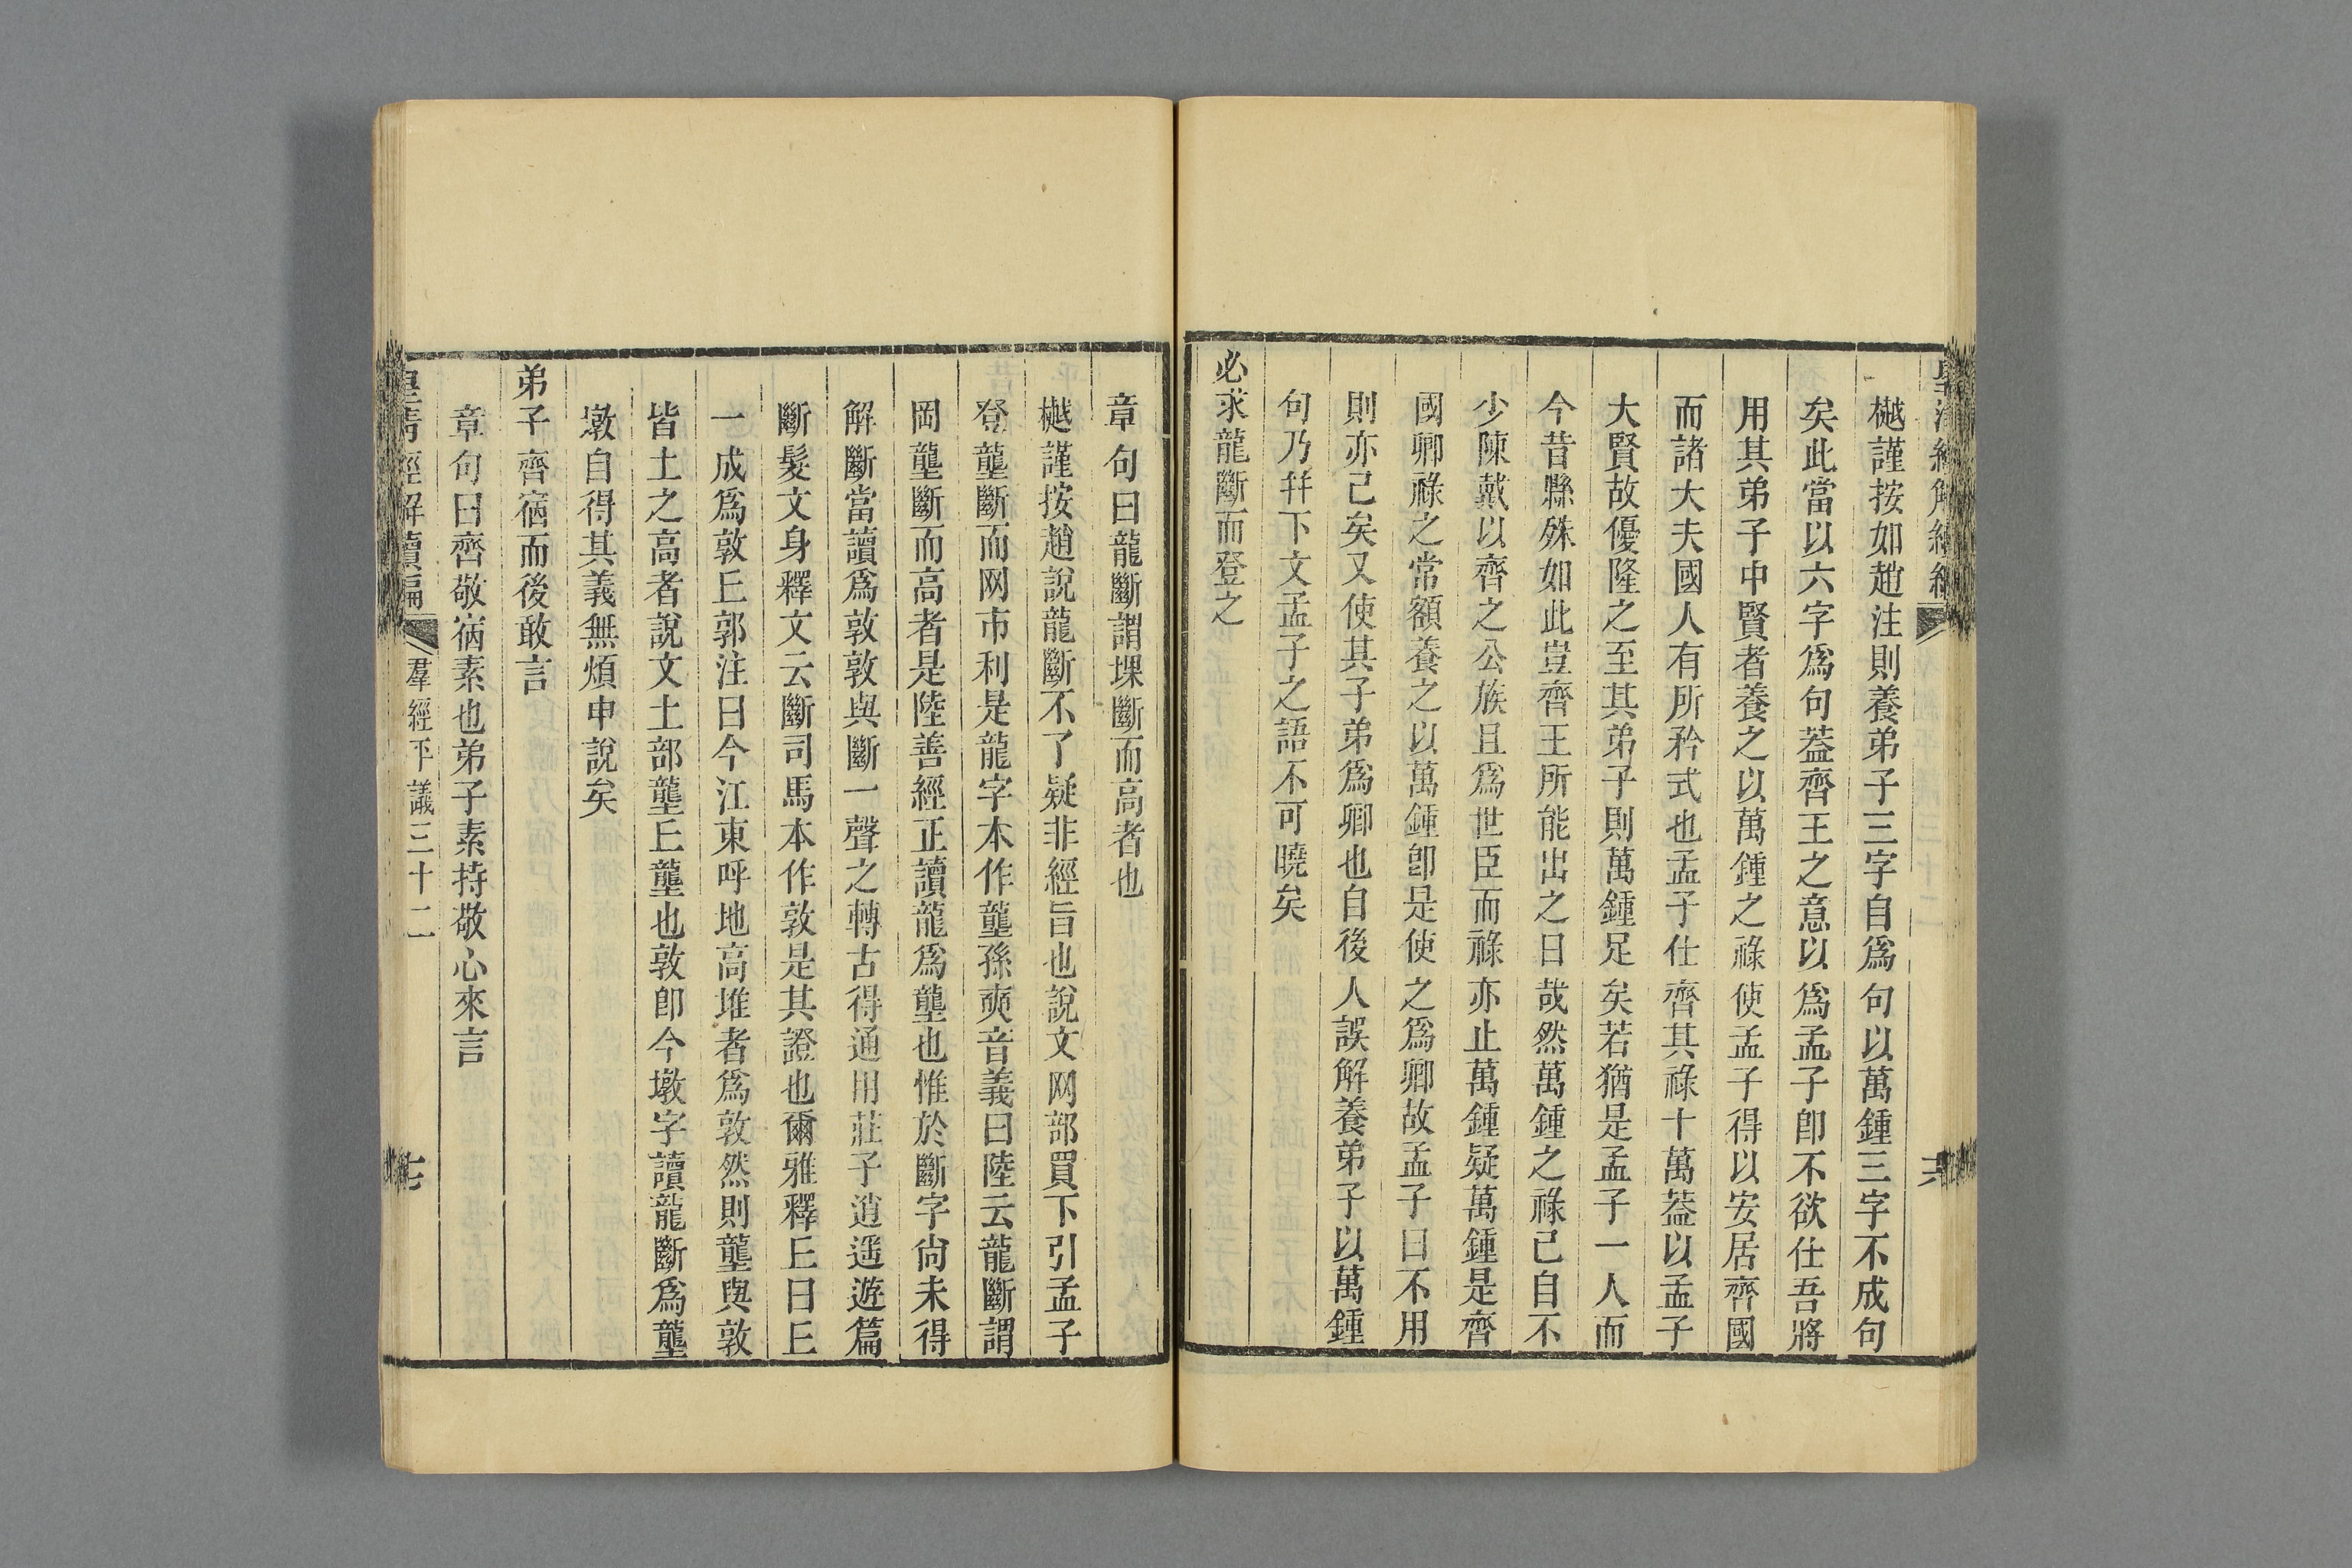 皇清經解續編
樾謹按如趙注則養弟子三字自爲句以萬鍾三字不成句
矣此當以六字爲句葢齊王之意以爲孟子卽不欲仕吾將
用其弟子中賢者養之以萬鍾之祿使孟子得以安居齊國
而諸大夫國人有所矜式也孟子仕齊其祿十萬葢以孟子
大賢故優隆之至其弟子則萬鍾足矣若猶是孟子一人而
今昔縣殊如此豈齊王所能出之日哉然萬鍾之祿已自不
少陳戴以齊之公族且爲世臣而祿亦止萬鍾疑萬鍾是齊
國卿祿之常額養之以萬鍾卽是使之爲卿故孟子曰不用
則亦已矣又使其子弟爲卿也自後人誤解養弟子以萬鍾
句乃幷下文孟子之語不可曉矣
必求龍斷而登之
章句曰龍斷謂堁斷而高者也
樾謹按趙說龍斷不了疑非經旨也說文网部買下引孟子
登壟斷而网市利是龍字本作壟孫奭音義曰陸云龍斷謂
岡壟斷而高者是陸善經正讀龍爲壟也惟於斷字尙未得
解斷當讀爲敦敦與斷一聲之轉古得通用莊子逍遥遊篇
斷髮文身釋文云斷司馬本作敦是其證也爾雅釋丘曰丘
一成爲敦丘郭注曰今江東呼地高堆者爲敦然則壟與敦
皆土之高者說文土部壟丘壟也敦卽今墩字讀龍斷爲壟
墩自得其義無煩申說矣
弟子齊宿而後敢言
章句曰齊敬宿素也弟子素持敬心來言
皇清經解續編
羣經平議三十二